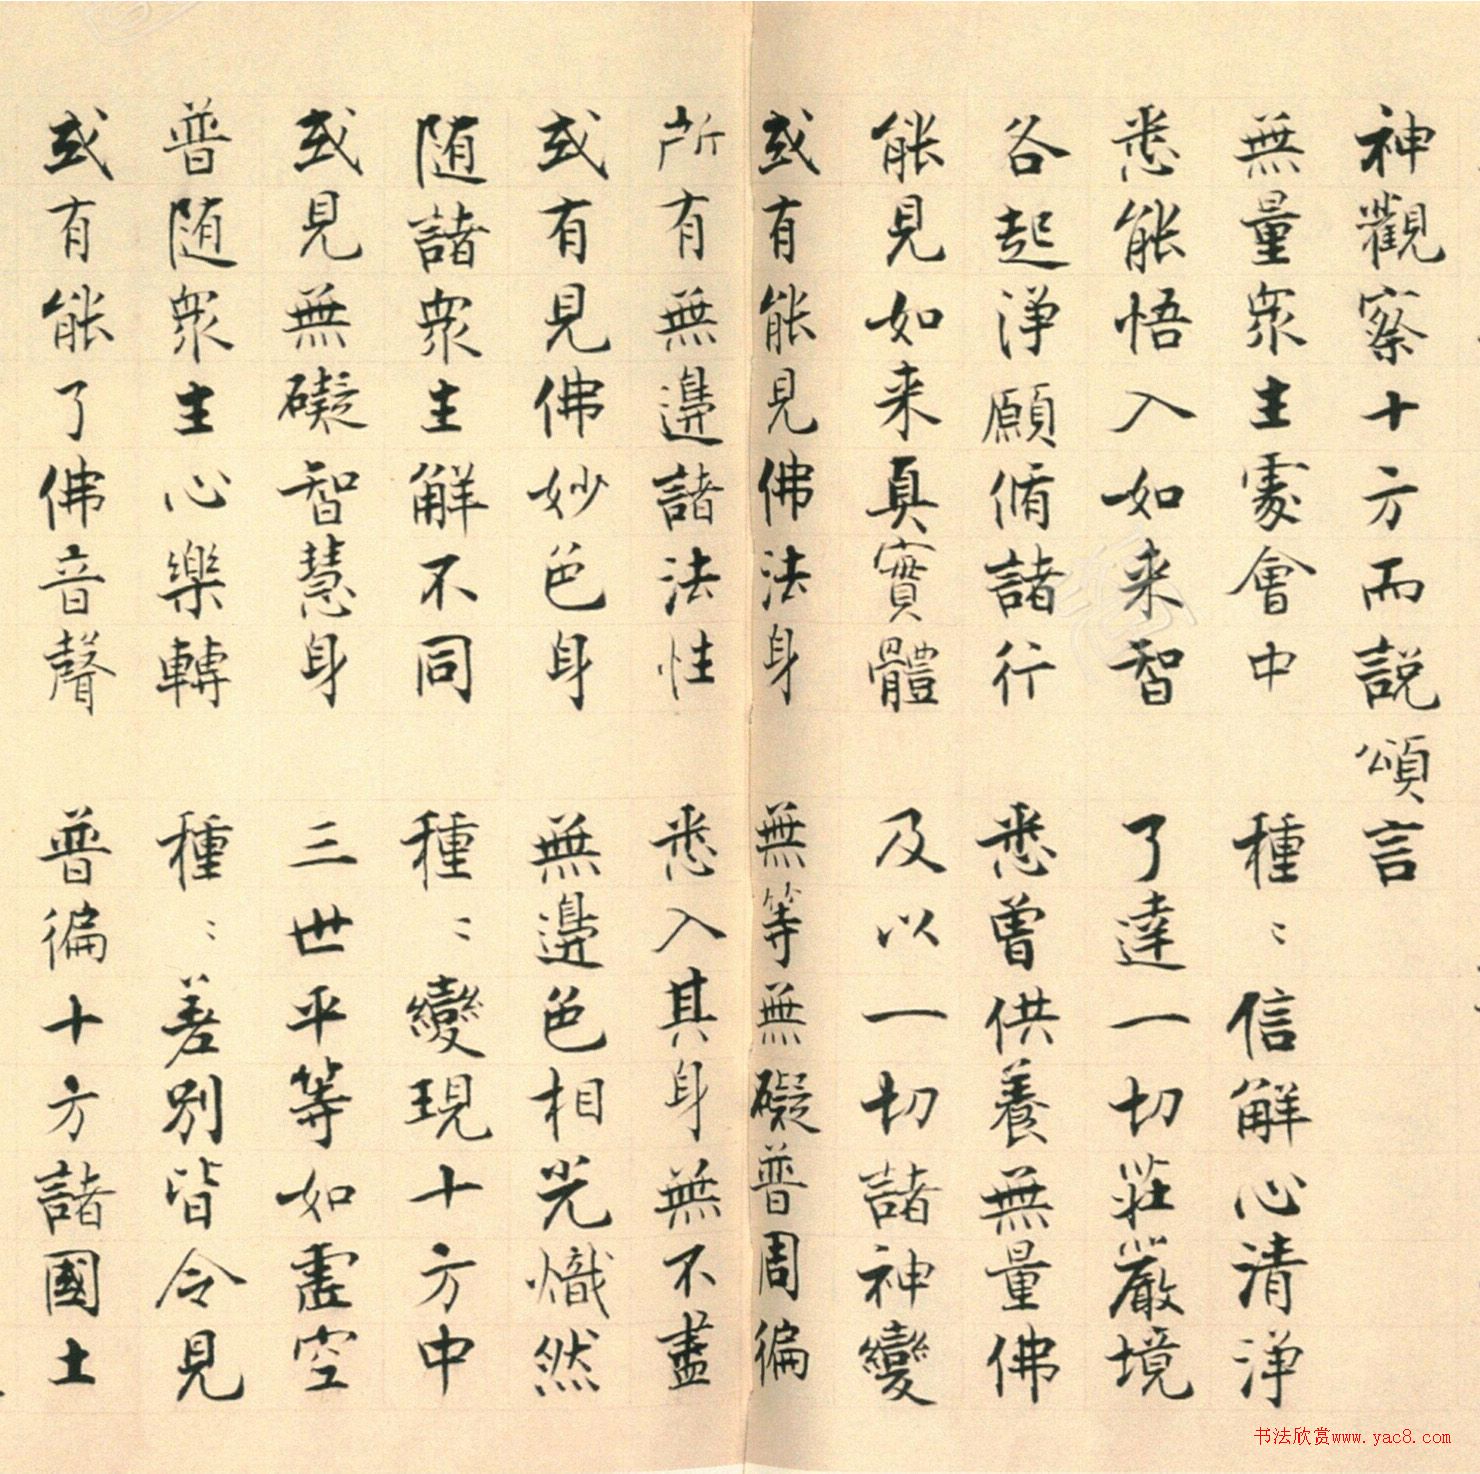 神觀察十方而說頌言
無量衆生處會中　種〻信解心清淨
悉能悟入如来智　了達一切莊嚴境
各起淨願脩諸行　悉曾供養無量佛
能見如来真實體　及以一切諸神變
或有能見佛法身　無等無礙普周徧
所有無邊諸法性　悉入其身無不盡
或有見佛妙色身　無邊色相光熾然
随諸衆生解不同　種〻變現十方中
或見無礙智慧身　三世平等如虛空
普随衆生心樂轉　種〻差別皆令見
或有能了佛音聲　普徧十方諸國土
书法欣赏www.yac8.com